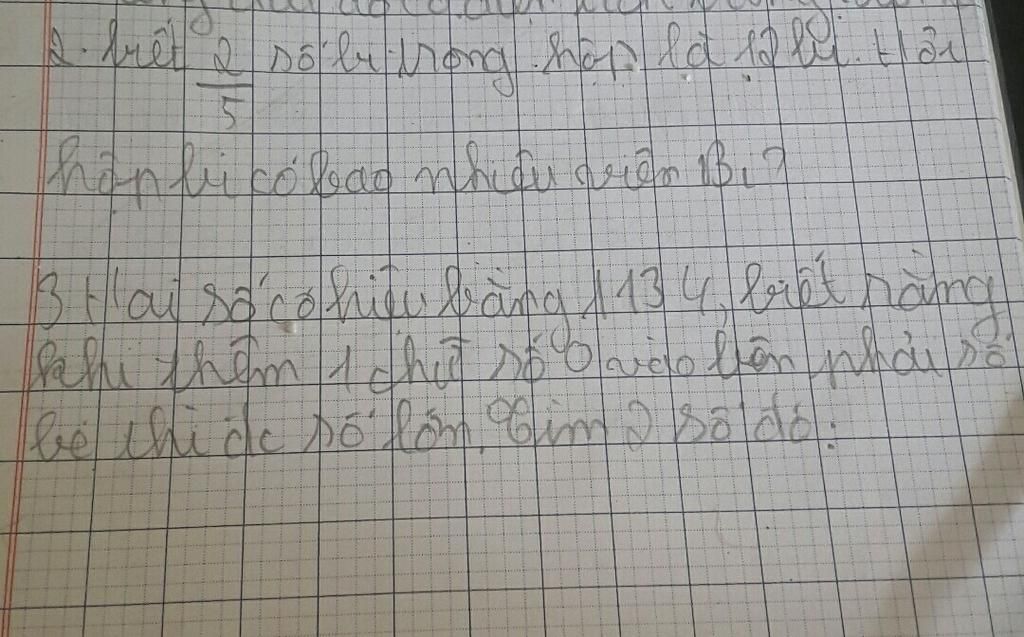 2. biết 2/5 số bi trong hộp là 12 bi. Hỏi
hộp bi có bao nhiêu viên bi?
3 Hai số có hiệu bằng 1134, biết rằng
khi thêm 1 chữ số 0 vào bên phải số
bé thì đc số lớn, tìm 2 số đó.